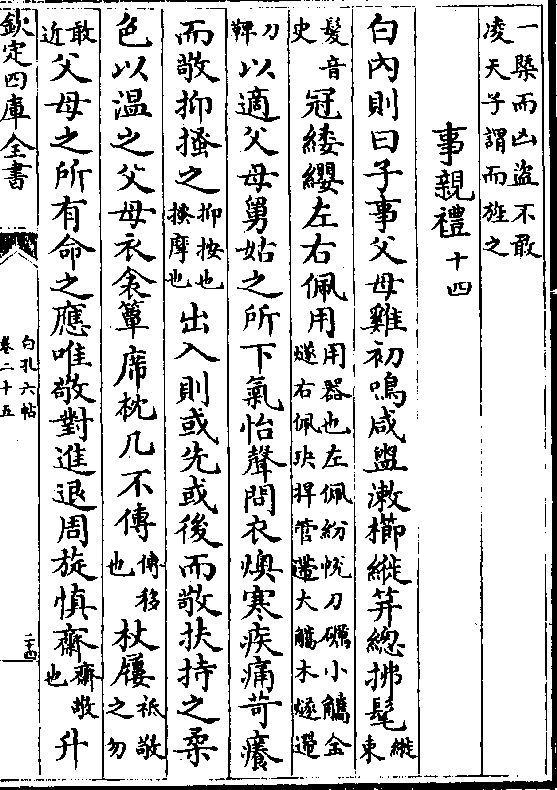 一槩而凶盗不敢
凌天子謂而旌之
事親禮十四
白内則曰子事父母雞初鳴咸盥漱櫛縰笄總拂髦縰束
髮音史冠緌纓左右佩用用器也左佩紛帨刀礪小觿金燧右佩玦捍管遰大觿木燧遰
刀鞞以適父母舅姑之所下氣怡聲問衣燠寒疾痛苛癢
而敬抑搔之抑按也搔摩也出入則或先或後而敬扶持之柔
色以温之父母衣衾簟席枕几不傳傳移也杖屨祇敬之勿
敢近父母之所有命之應唯敬對進退周旋慎齋齋敬也升
欽定四庫全書
白孔六帖
卷二十五
二十四